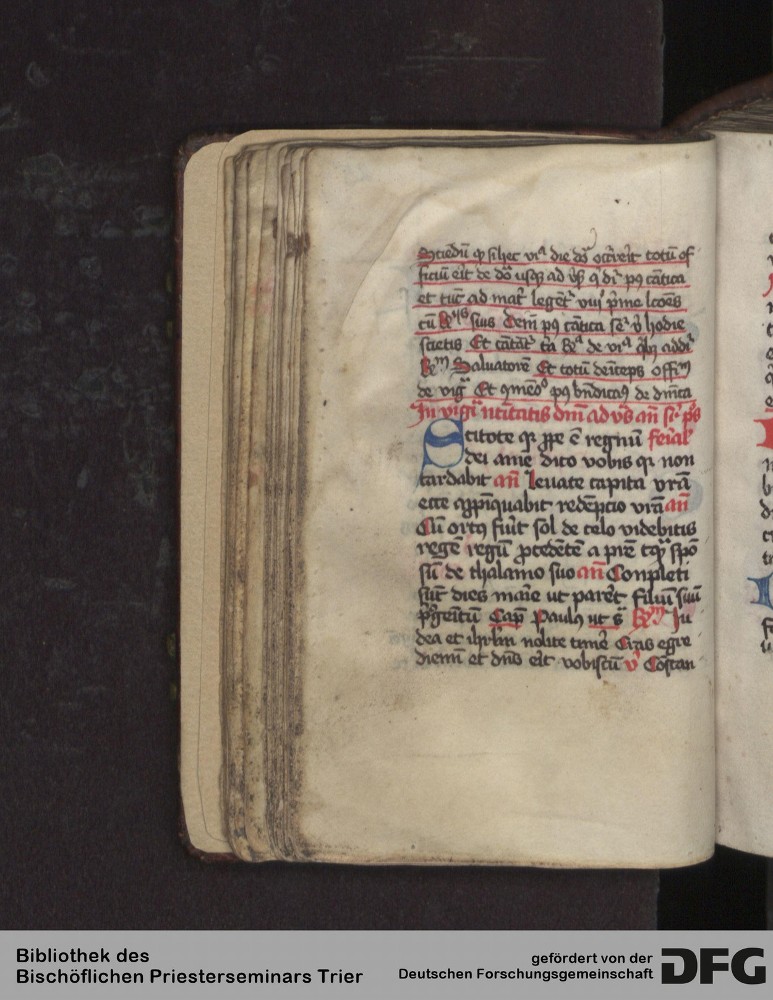 Sciedū ꝙ si hec viᵃ die dō occ̄rerit totū of
ficiū erit de dō usqꝫ ad vꝰ q̄ dr̄ pꝰ cātica
et tūc ad mat̄ legēt̄ viiij p̄me lcōes
cū suis Deīn pꝰ cātica v̄ hodie
scietis Et cātat̄ de viᵃ addr̄
℞ᵐ Saluatorē Et totū deīceps offᵐ
de vigᵃ Et pꝰ bn̄dicaꝰ de dnīca
In vigᵃ ntīuitatis dnī ad vꝰ añ sr̄ ps̄
Scitote qꝛ ꝓpe ē regnū ferial'
dei amē dico vobis qꝛ non
tardabit añ Leuate capita vrā
ecce apꝓpīquabit redēpcio vrā añ
Cū ortꝰ fūit sol de celo videbitis
regē regū ꝓcedētē a prē tꝙᵃ spō
sū de thalamo suo añ Conpleti
sūt dies marie ut paret̄ filiū suū
pʳmogenitū Capᵐ Paulꝰ ut sᵃ ℞ᵐ Iu
dea et ihrl̄m nolite timē Cras egre
diemī et dn̄s erit vobiscū v̄ Cōstan
Bibliothek des
Bischöflichen Priesterseminars Trier
gefördert von der
Deutschen Forschungsgemeinschaft
DFG